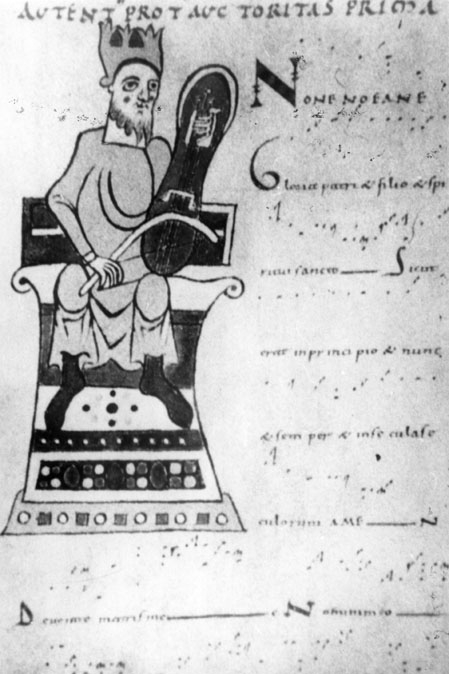 AUTENTꝰ PROT AUCTORITAS PRIMA
NONENOEANE
Gloria patri & filio & spi
ritui sancto Sicut
erat inprincipio & nunc
& semper & inse culase
culorum AMEN
De N